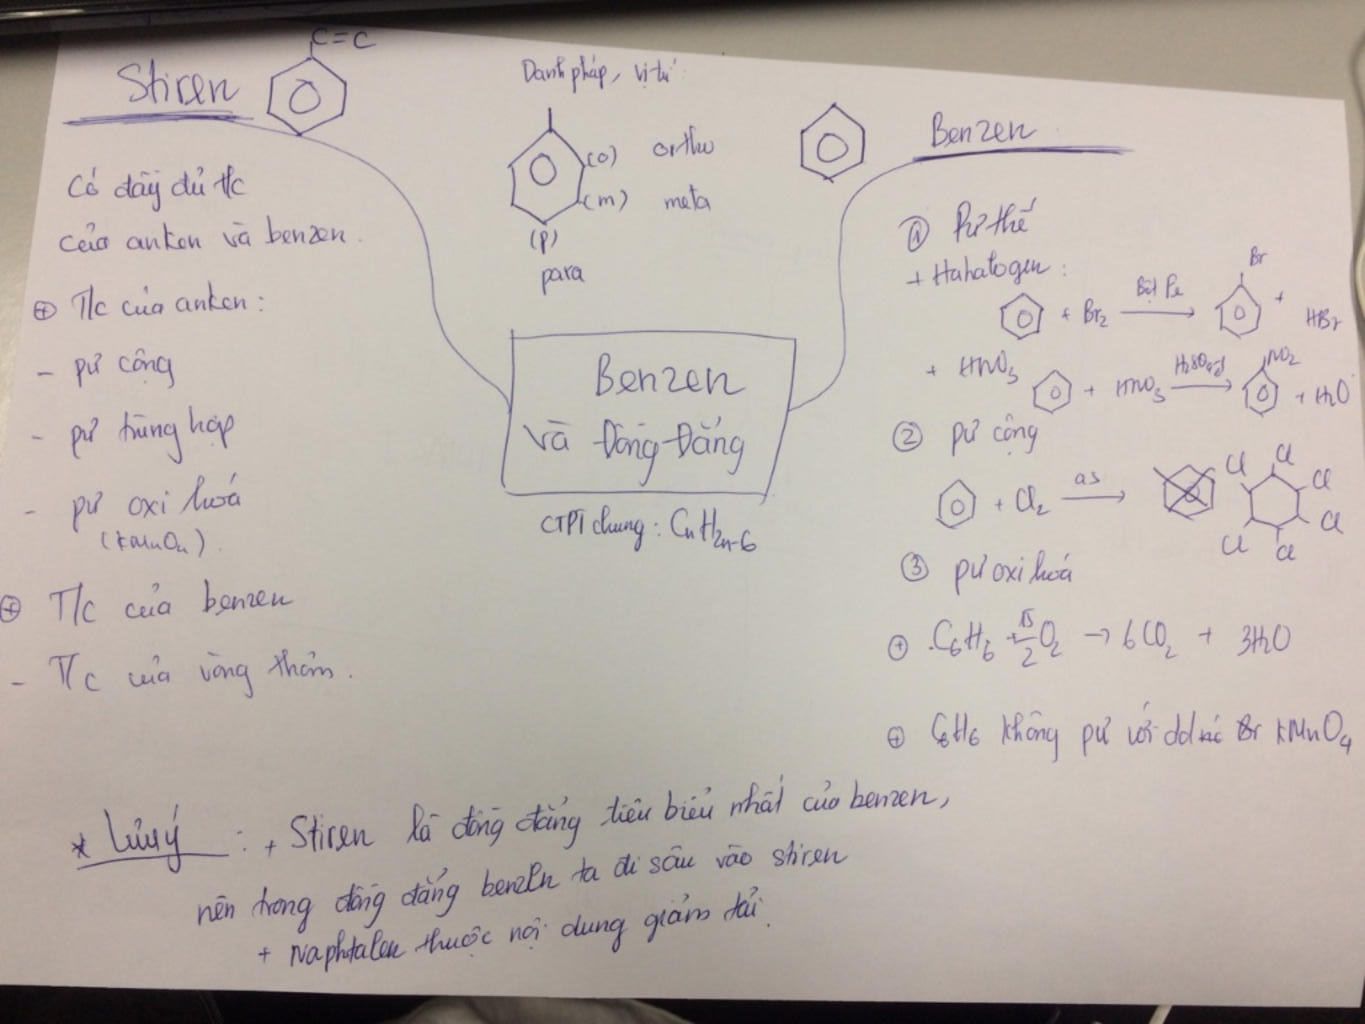 Stiren
C=C
Có đầy đủ t/c
của anken và benzen.
+ T/c của anken:
- pư cộng
- pư trùng hợp
- pư oxi hoá
(KMnO4).
+ T/c của benzen
- T/c của vòng thơm.
Danh pháp, vị trí:
(o) ortho
(m) meta
(p)
para
Benzen
và Đồng Đẳng
CTPT chung: CnH2n-6
Benzen
① Pư thế
+ Hahalogen:
+ Br2 Bột Fe → Br + HBr
+ HNO3 + HNO3 H2SO4đ → NO2 + H2O
② pư cộng
+ Cl2 as → Cl Cl Cl Cl Cl Cl
③ pư oxi hoá
+ C6H6 + 15/2 O2 → 6CO2 + 3H2O
+ C6H6 không pư với dd Br KMnO4
* Lưu ý: + Stiren là đồng đẳng tiêu biểu nhất của benzen,
nên trong đồng đẳng benzen ta đi sâu vào stiren
+ Naphtalen thuộc nội dung giảm tải.